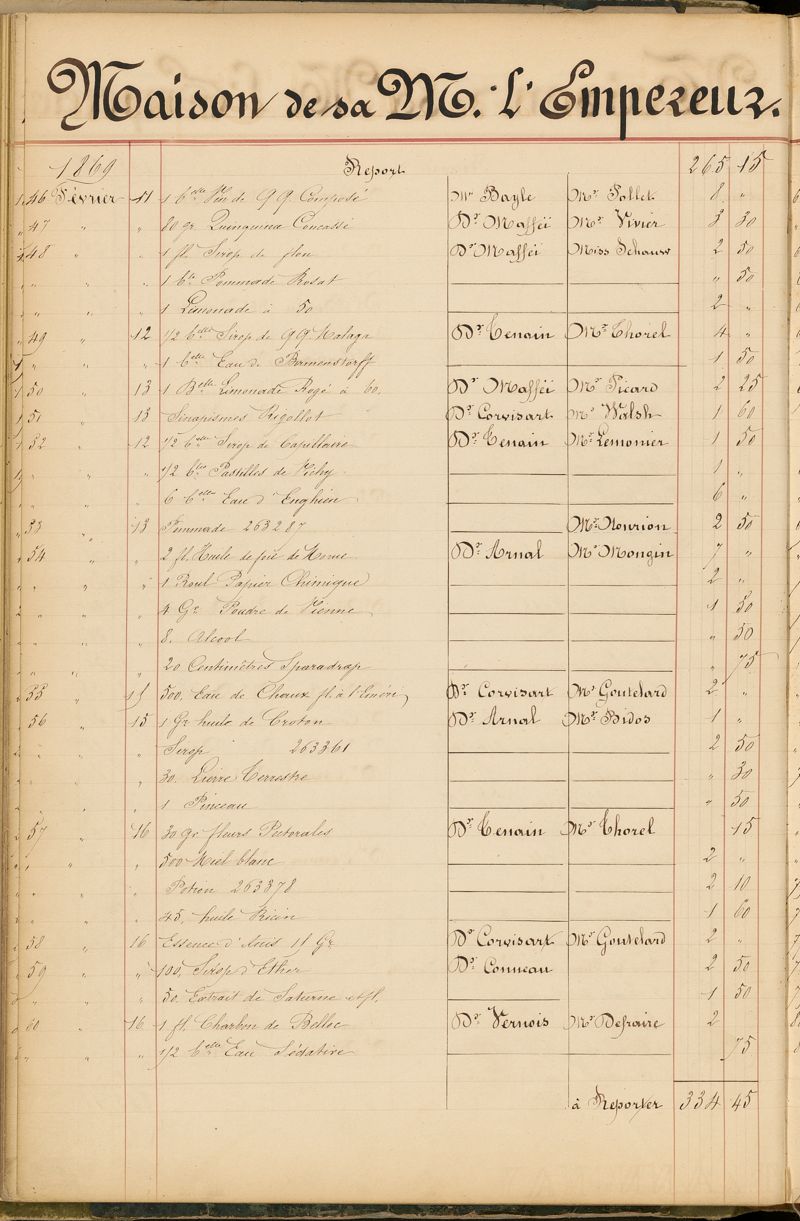 Maison de sa M. L'Empereur.
1869 Report 265 15
46 Février 11 1 b^elle Vin de QQ Composé M^r Bayle M^r Pollet 8 "
47 " " 80 gr Quinquina Concassé D^r Maffei M^r Vivier 3 30
48 " " 1 fl. Sirop de D^r Maffei Miss Schauw 2 50
" " " 1 Pommade Rosat " 50
" " " 1 Limonade à 50 2 "
49 " 12 1/2 b^elle Sirop de QQ Malaga D^r Tenain M^r Thorel 4 "
" " " 1 b^elle Eau de Birmenstorff 1 50
50 " 13 1 B^elle Limonade Rogé à 60. D^r Maffei M^r Picard 2 25
51 " 13 Sinapismes Rigollot D^r Corvisart M^r Walsh 1 60
52 " 12 1/2 b^elle Sirop de Capillaire D^r Tenain M^r Lemonier 1 50
" " " 1/2 b^te Pastilles de Vichy 1 "
" " " 6 b^elle Eau d'Enghien 6 "
53 " 13 Pommade 263287 M^r Nourion 2 50
54 " " 2 fl. Huile de foie de Morue D^r Arnal M^r Mongin 7 "
" " " 1 Roul Papier Chimique 2 "
" " " 4 Gr Poudre de Vienne 1 50
" " " 8. Alcool " 50
" " " 20 Centimètres Sparadrap " 75
55 " 15 500. Eau de Chaux fl. à l'Emeri D^r Corvisart M^r Goutelard 2 "
56 " 15 1 Gr huile de Croton D^r Arnal M^r Bidos 1 "
" " " Sirop 263361 2 50
" " " 30. Lierre Terrestre " 30
" " " 1 Pinceau " 50
57 " 16 30 gr fleurs Pectorales D^r Tenain M^r Thorel 15
" " " 500 Miel blanc 2 "
" " " Potion 263378 2 10
" " " 45. huile Ricin 1 60
58 " 16 Essence d'Anis 15 Gr D^r Corvisart M^r Goutelard 2 "
59 " " 100. Sirop d'Ether D^r Conneau 2 50
" " " 50. Extrait de Saturne et fl. 1 50
60 " 16 1 fl. Charbon de Belloc D^r Vernois M^r Defraire 2
" " " 1/2 b^elle Eau Sédative 75
à Reporter 334 45